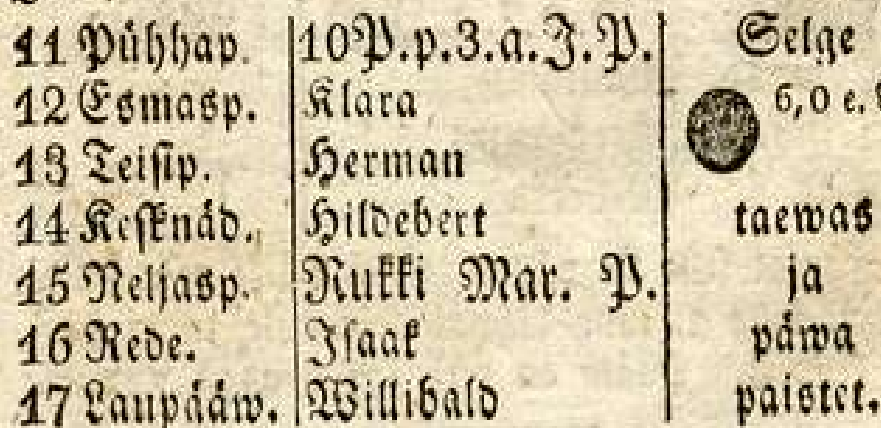 11 Pühhap. 10 P. p. 3. a. J. P. Selge
12 Esmasp. Klara 6,0 e.
13 Teisip. Herman
14 Kesknäd. Hildebert taewas
15 Neljasp. Rukki Mar. P. ja
16 Rede. Isaak päwa
17 Laupääw. Willibald paistet.